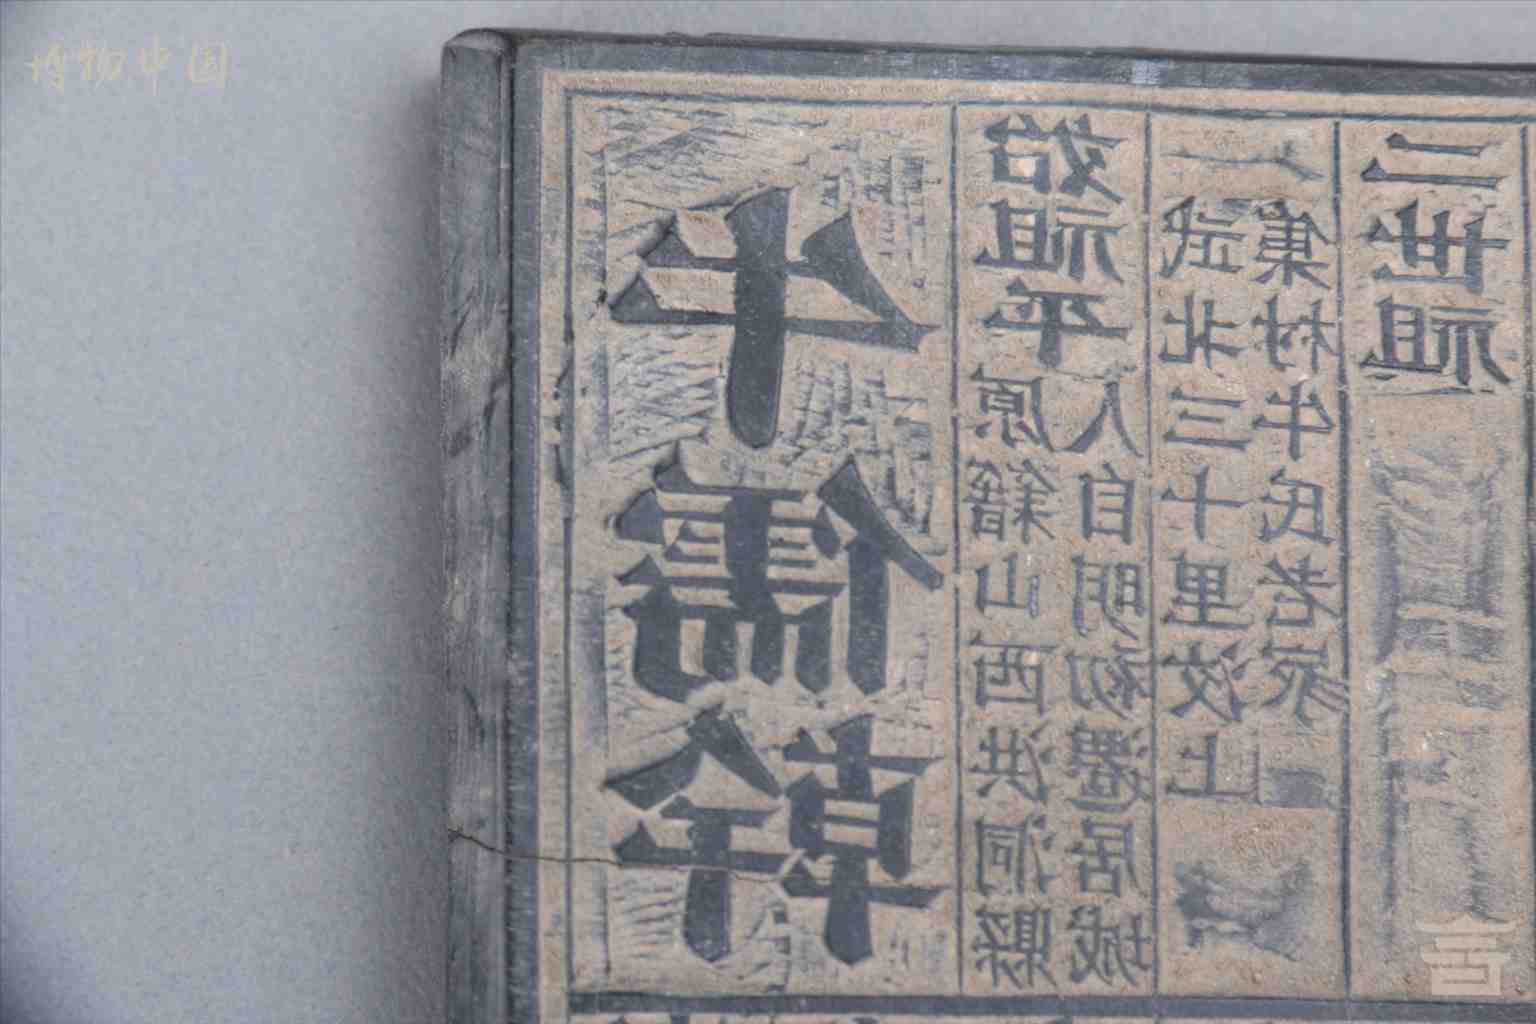 博物中国
牛儒幹
始祖平
原籍山西洪洞縣
人自明初遷居城
武北三十里汶上
集村牛氏老家
二世祖